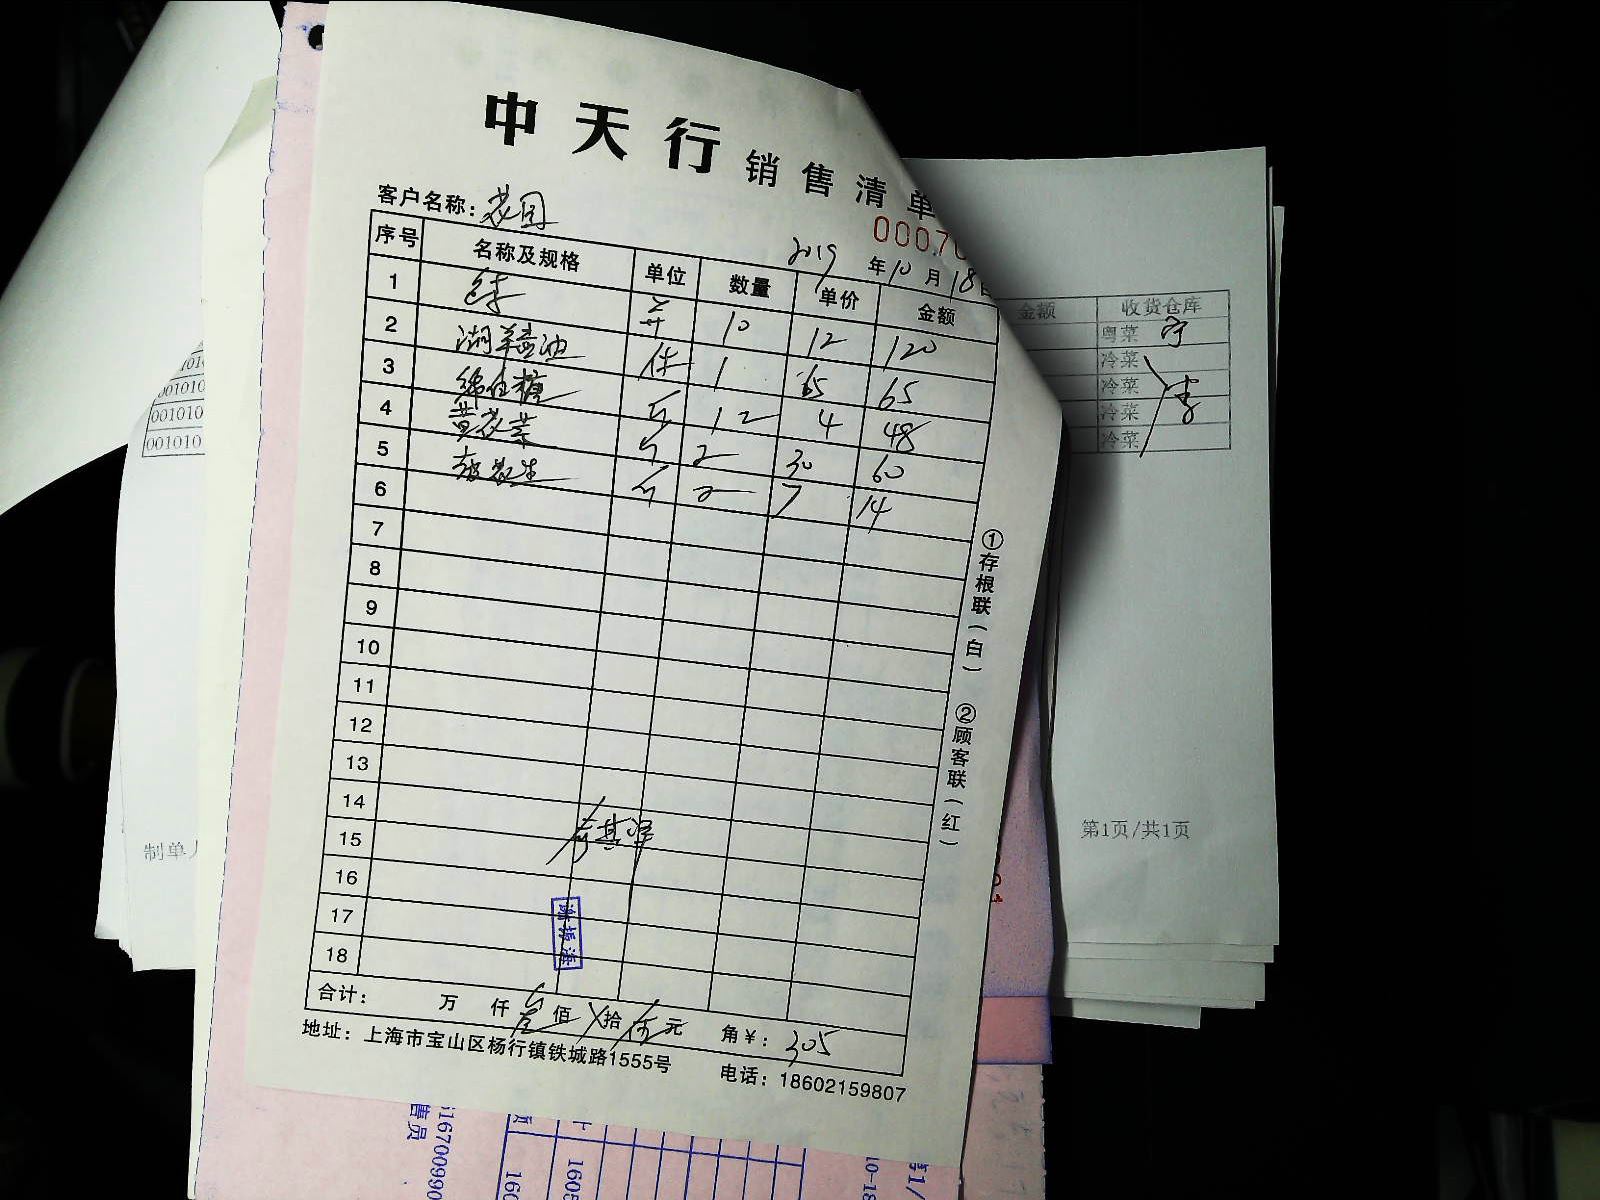 中天行 销售清单
0007
客户名称：花园
2019年10月18日
序号 名称及规格 单位 数量 单价 金额
1 10 12 120
2 湖羊酱油 件 1 65 65
3 绵白糖 斤 12 4 48
4 黄花菜 斤 2 30 60
5 斤 2 7 14
6
7
8
9
10
11
12
13
14
15
16
17
18
合计： 万 仟 叁佰 拾 伍元 角￥：305
地址：上海市宝山区杨行镇铁城路1555号 电话：18602159807
①存根联（白） ②顾客联（红）
金额 收货仓库
粤菜
冷菜
冷菜
冷菜
冷菜
第1页/共1页
001010
001010
001010
制单人
售员